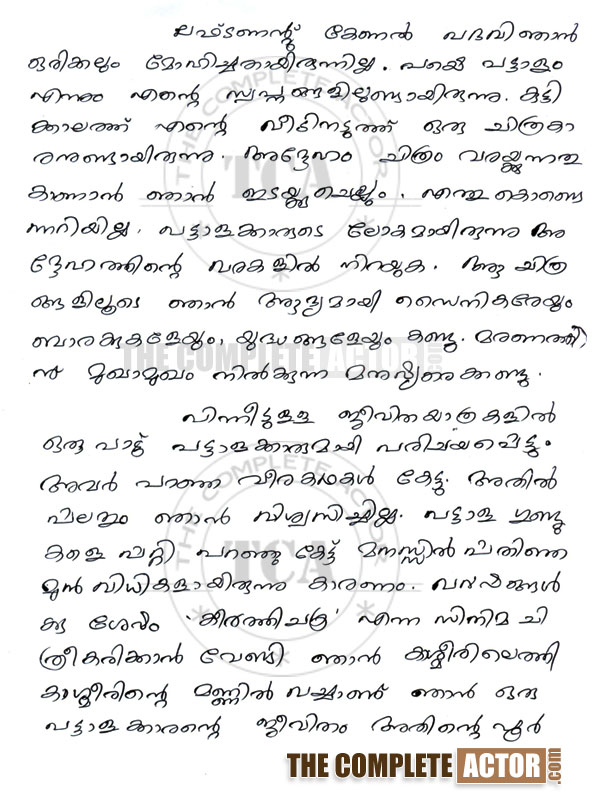 ലഫ്ടണന്റ് കേണൽ പദവി ഞാൻ
ഒരിക്കലും മോഹിച്ചതായിരുന്നില്ല. പക്ഷെ പട്ടാളം
എന്നും എന്റെ സ്വപ്നങ്ങളിലുണ്ടായിരുന്നു. കുട്ടി
ക്കാലത്ത് എന്റെ വീടിനടുത്ത് ഒരു ചിത്രകാ
രനുണ്ടായിരുന്നു. അദ്ദേഹം ചിത്രം വരയ്ക്കുന്നതു
കാണാൻ ഞാൻ ഇടയ്ക്കുചെല്ലും. എന്തുകൊണ്ടെ
ന്നറിയില്ല. പട്ടാളക്കാരുടെ ലോകമായിരുന്നു അ
ദ്ദേഹത്തിന്റെ വരകളിൽ നിറയുക. ആ ചിത്ര
ങ്ങളിലൂടെ ഞാൻ ആദ്യമായി സൈനികരേയും
ബാരക്കുകളേയും, യുദ്ധങ്ങളേയും കണ്ടു. മരണത്തി
ന് മുഖാമുഖം നിൽക്കുന്ന മനുഷ്യരെക്കണ്ടു.
പിന്നീടുള്ള ജീവിതയാത്രകളിൽ
ഒരുപാട് പട്ടാളക്കാരുമായി പരിചയപ്പെട്ടു.
അവർ പറഞ്ഞ വീരകഥകൾ കേട്ടു. അതിൽ
പലതും ഞാൻ വിശ്വസിച്ചില്ല. പട്ടാള ഗുണ്ടു
കളെ പറ്റി പറഞ്ഞു കേട്ട് മനസ്സിൽ പതിഞ്ഞ
മുൻ വിധികളായിരുന്നു കാരണം. വർഷങ്ങൾ
ക്കു ശേഷം 'കീർത്തിചക്ര' എന്ന സിനിമ ചി
ത്രീകരിക്കാൻ വേണ്ടി ഞാൻ കാശ്മീരിലെത്തി
കാശ്മീരിന്റെ മണ്ണിൽ വച്ചാണ് ഞാൻ ഒരു
പട്ടാളക്കാരന്റെ ജീവിതം അതിന്റെ പൂർ
THE COMPLETE ACTOR.com
THE COMPLETE ACTOR
TCA
THE COMPLETE ACTOR.com
THE COMPLETE ACTOR
TCA